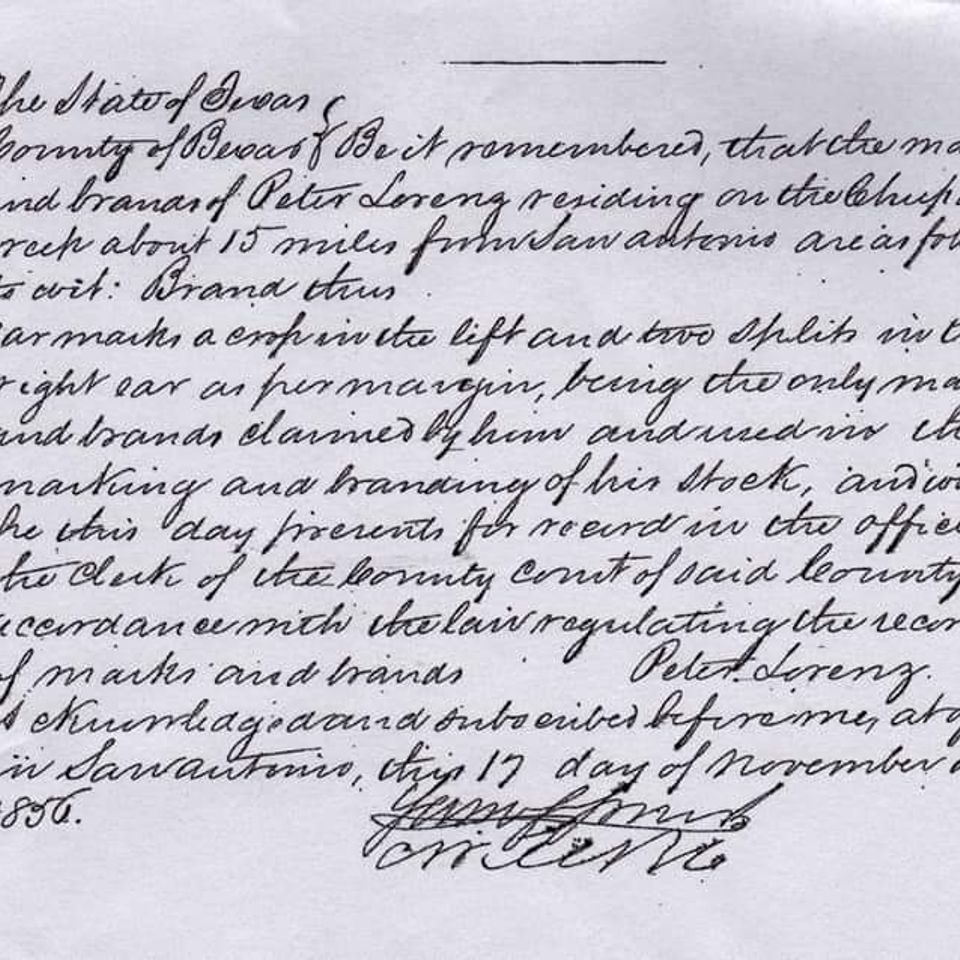 he State of Texas
County of Bexar Be it remembered, that the ma
nd brands of Peter Lorenz residing on the Chup
reek about 15 miles from San antonio are as fol
to wit: Brand thus
ar marks a crop in the left and two splits in t
right ear as per margin, being the only ma
and brands claimed by him and used in the
marking and branding of his stock, and w
he this day presents for record in the office
the Clerk of the County court of said County
accordance with the law regulating the recor
of marks and brands Peter Lorenz.
Acknowledged and subscribed before me, at
in San antonio, this 17 day of November
1856.